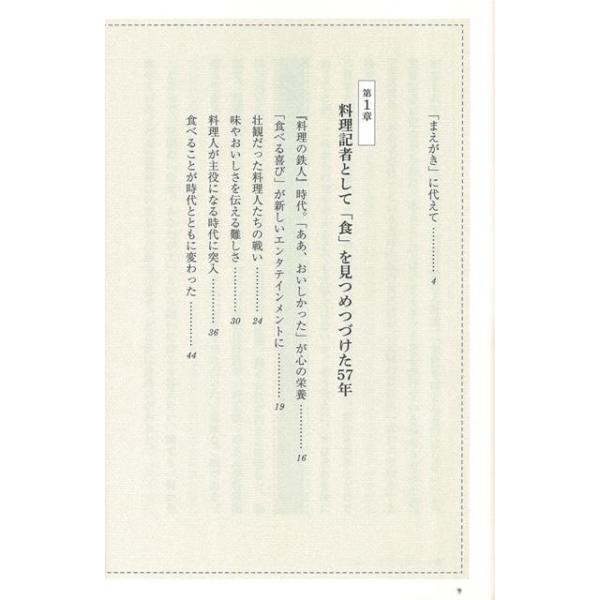 「まえがき」に代えて…………4
第1章
料理記者として「食」を見つめつづけた57年
『料理の鉄人』時代。「ああ、おいしかった」が心の栄養…………16
「食べる喜び」が新しいエンタテインメントに…………19
壮観だった料理人たちの戦い…………24
味やおいしさを伝える難しさ…………30
料理人が主役になる時代に突入…………36
食べることが時代とともに変わった…………44